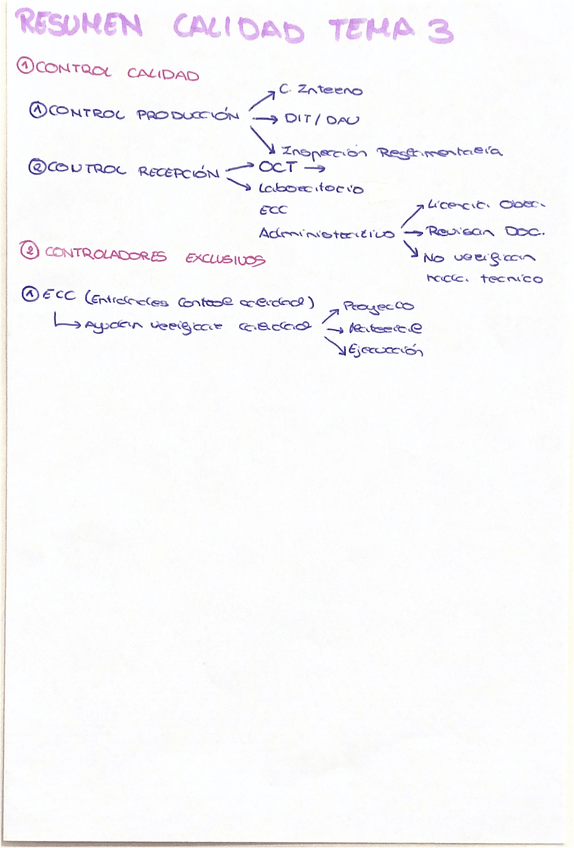 RESUMEN CALIDAD TEMA 3
① CONTROL CALIDAD
① CONTROL PRODUCCIÓN → C. Interno
→ DIT / DAU
→ Inspección Reglamentaria
② CONTROL RECEPCIÓN → OCT →
→ Laboratorio
ECC
Administrativo → Licencia Obra.
→ Revisan DOC.
→ No verifican
nada. tecnico
② CONTROLADORES EXCLUSIVOS
① ECC (Entidades Control calidad)
↳ Ayudan verificar calidad → Proyecto
→ Material
→ Ejecución